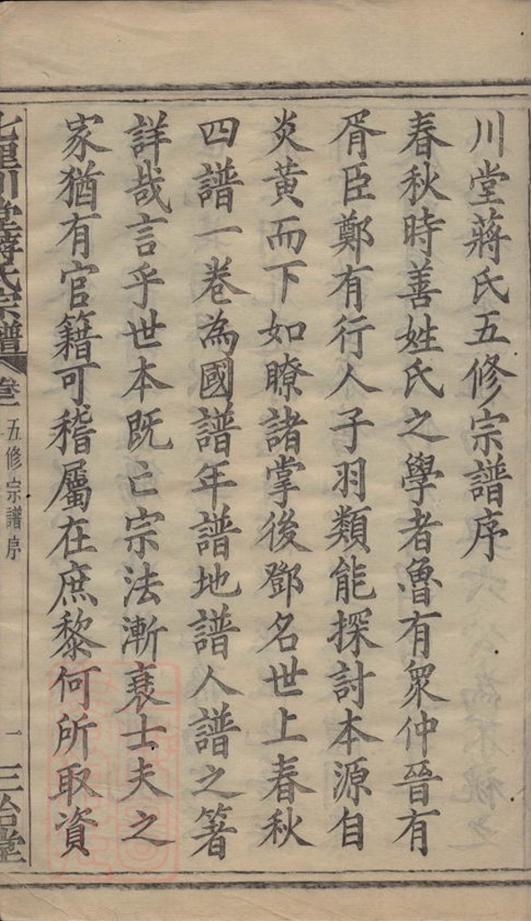 川堂蔣氏五修宗譜序
春秋時善姓氏之學者魯有眾仲晉有
胥臣鄭有行人子羽類能探討本源自
炎黃而下如瞭諸掌後鄧名世上春秋
四譜一卷為國譜年譜地譜人譜之著
詳哉言乎世本既亡宗法漸衰士夫之
家猶有官籍可稽屬在庶黎何所取資
七里川堂蔣氏宗譜
卷一
五修宗譜序
一
三治堂